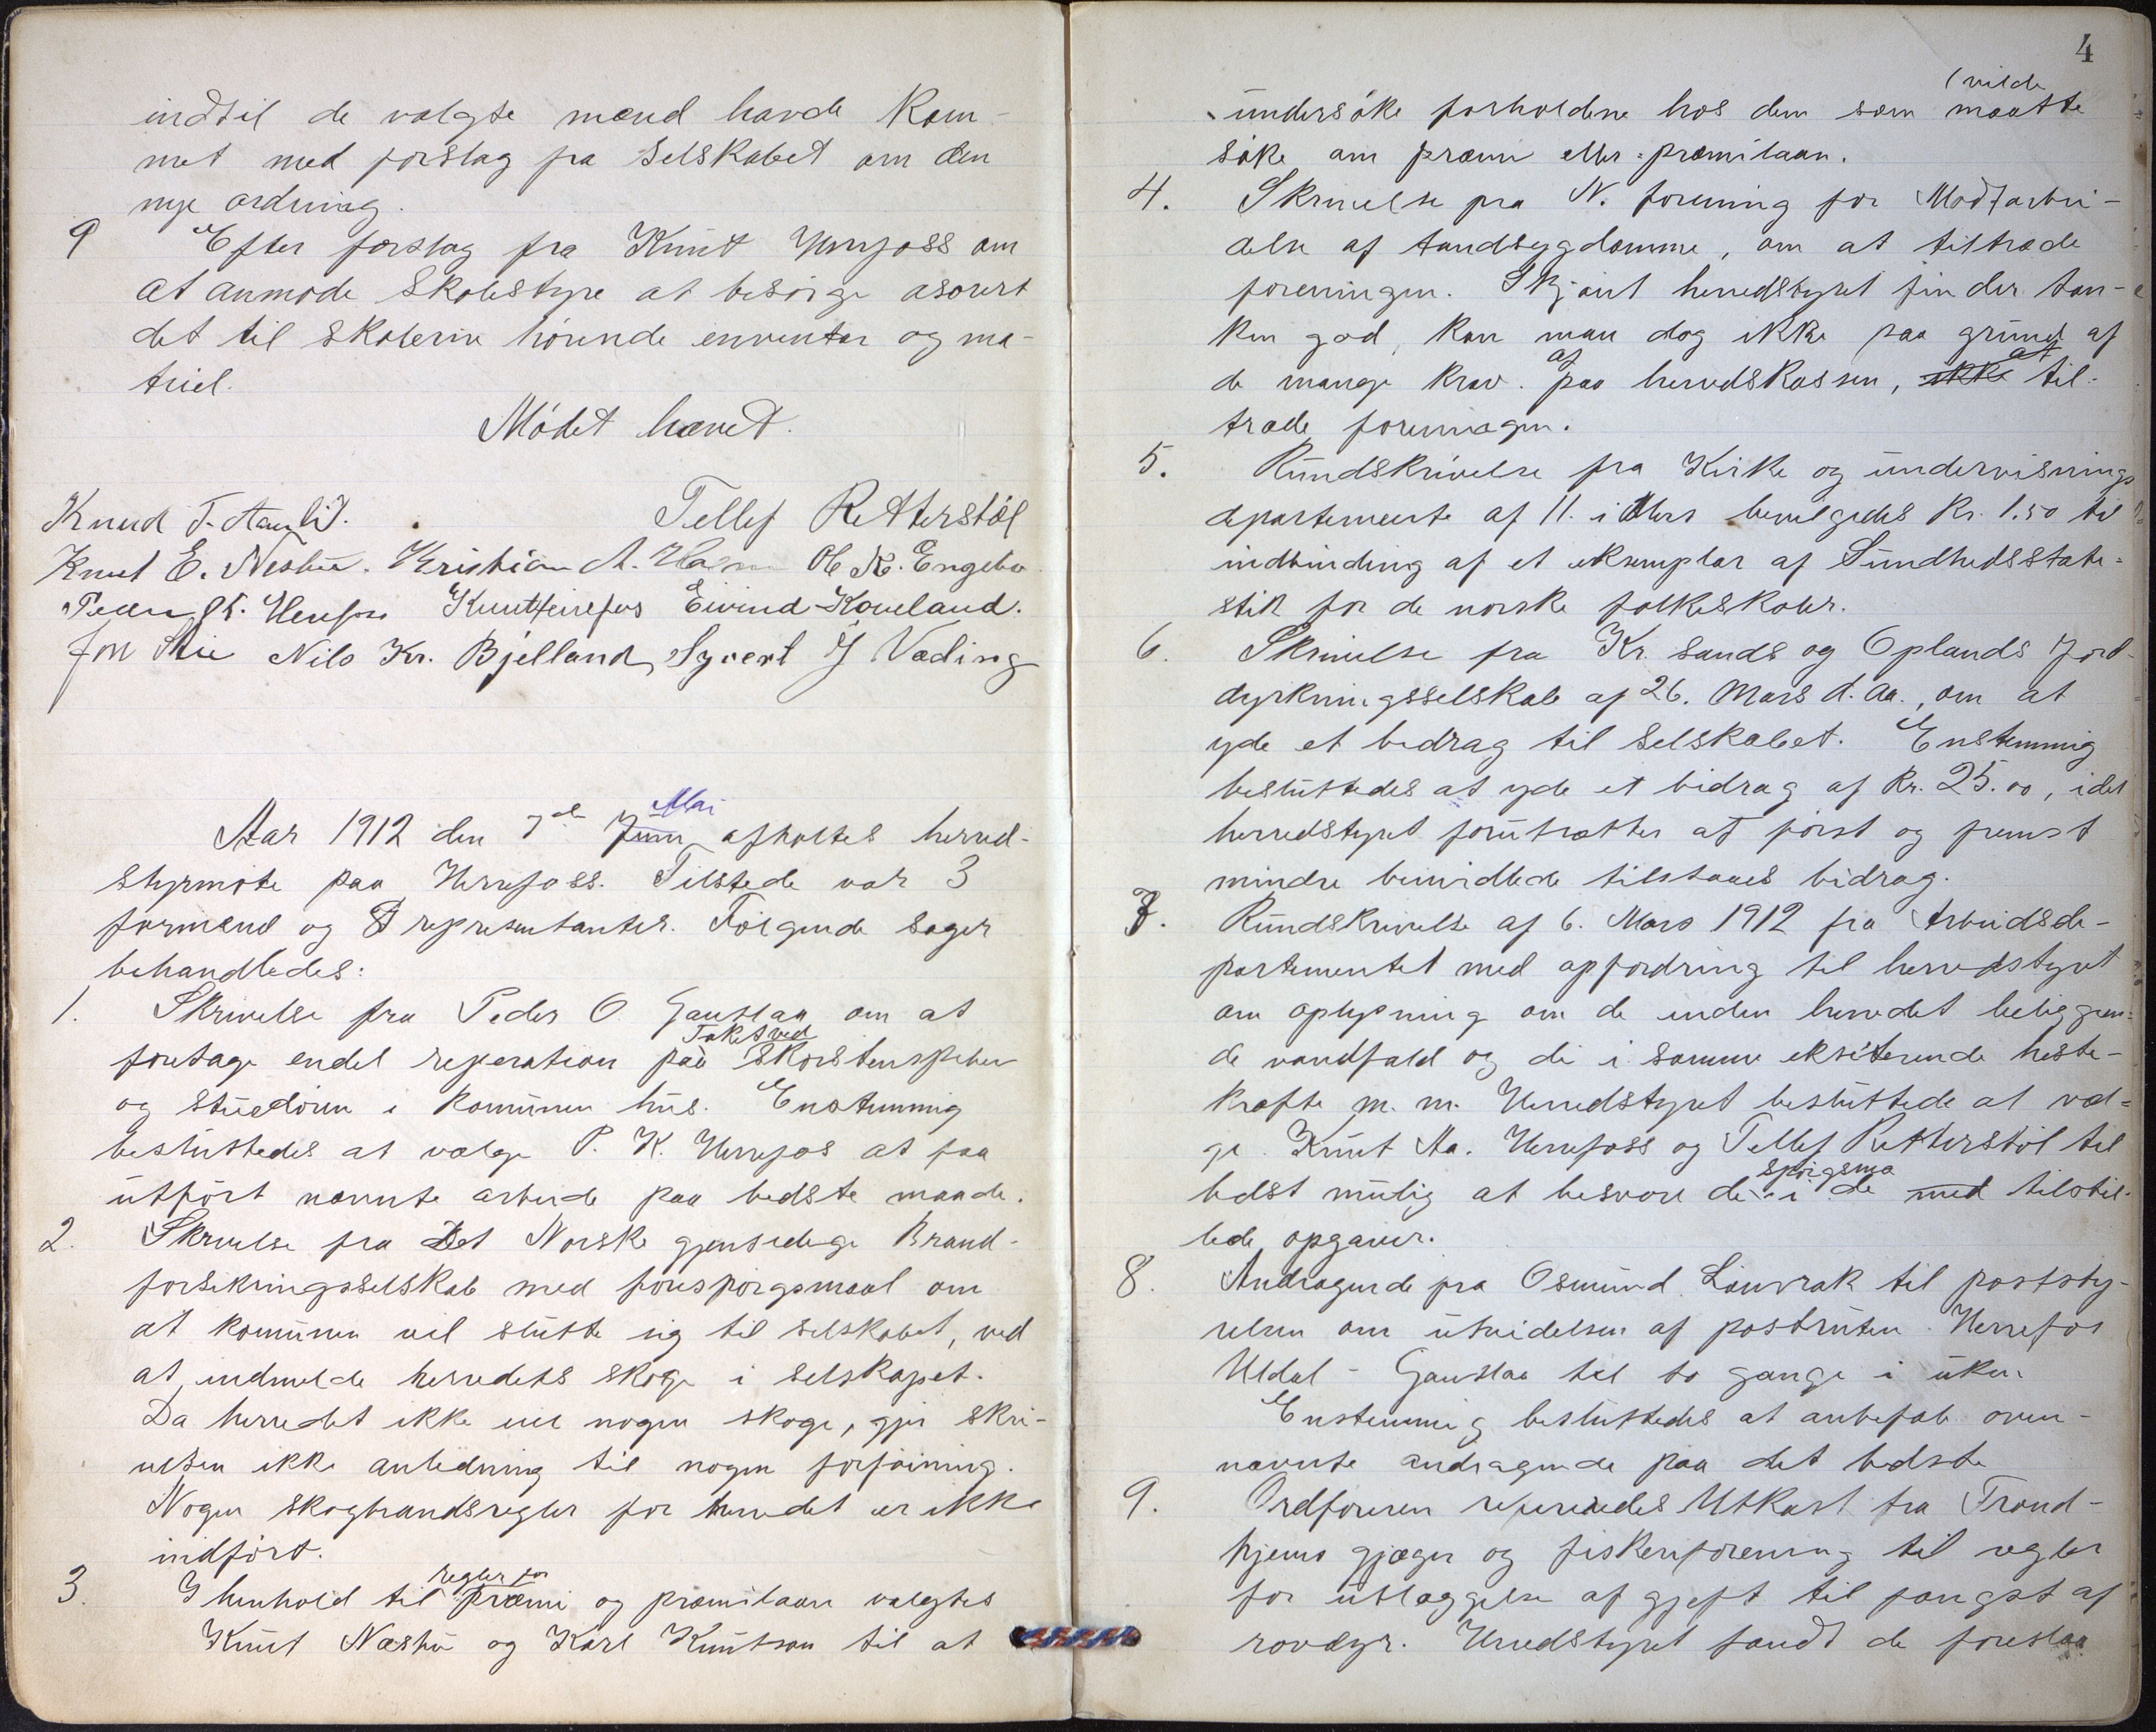 indtil de valgte mænd havde kom-
met med forslag fra Selskabet om den
nye ordning.
9 Efter forslag fra Knut Herrefoss om
at anmode Skolestyre at besørge asorert
det til skolerne hørende inventar og ma-
triel.
Mødet hævet.
Knud T. Haugli. Tellef Retterstøl
Knut E. Neshu. Kristian A. Ole K. Engebu
Peder K. Herefos Knut Herrefos Eivind Koveland.
Jon Nils Kr. Bjelland, Syvert J Væding
Mai
Aar 1912 den 7de Juni afholtes herred-
styrmøte paa Herrefoss. Tilstede var 3
formænd og 8 representanter. Følgende sager
behandledes:
1. Skrivelse fra Peder O. Gauslaa om at
Taket ved
foretage endel reperation paa Skorstenspiben
og stuedøren i komunen hus. Enstemmig
besluttedes at vælge P. K. Herrefos at faa
utført nævnte arbeide paa bedste maade.
2. Skrivelse fra Det Norske gjensidige Brand-
forsikringsselskab med forespørgsmaal om
at komunen vil slutte sig til selskabet, ved
at indmelde herredets skoge i selskapet.
Da herredet ikke eie nogen skoge, gjir skri-
velsen ikke anledning til nogen forføining.
Nogen skogbrandsregler for herredet er ikke
indført.
regler for
3. I henhold til præmi og præmilaan valgtes
Knut Næshu og Karl Knutson til at
4
(vilde
undersøke forholdene hos dem som maatte
søke om præmi eller præmilaan.
4. Skrivelse fra N. forening for Modarbei-
delse af tandsygdomme, om at tiltræde
foreningen. Skjønt herredstyret finder tan-
ken god, kan man dog ikke paa grund af
af at
de mange krav. paa herredskassen, ikke til-
træde foreningen.
5. Rundskrivelse fra Kirke og undervisnings
departemente af 11. i Mars bevilgedes Kr. 1.50 til
indbinding af et eksemplar af Sundhedsstati-
stik for de norske folkeskoler.
6. Skrivelse fra Kr. sands og Oplands Jord-
dyrkningsselskab af 26. Mars d. Aa., om at
yde et bedrag til Selskabet. Enstemmig
besluttedes at yde et bidrag af Kr. 25.00, idet
herredstyret forutsætter at først og fremst
mindre bemidlede tilstaaes bidrag.
7. Rundskrivelse af 6. Mars 1912 fra Arbeidsde-
partementet med opfordring til herredstyret
om oplysning om de inden herredet beliggen-
de vandfald og de i samme eksiterende heste-
kræfte m. m. Herredstyret besluttede at væl-
ge Knut Aa. Herrefoss og Tellef Retterstøl til
spørgsma
bedst mulig at besvare de i de med tilstil-
lede opgaver.
8. Andragende fra Osmund Lauvrak til poststy-
relsen om utvidelsen af postruten Herrefos
Uldal - Gauslaa til to gange i uken.
Enstemmig besluttedes at anbefale oven-
nævnte andragende paa det bedste
9. Ordføreren refereredes Utkast fra Trond-
hjems gjæger og fiskeriforening til regler
for utlæggelse af gjeft til fangst af
rovdyr. Herredstyret fandt de foreslaa